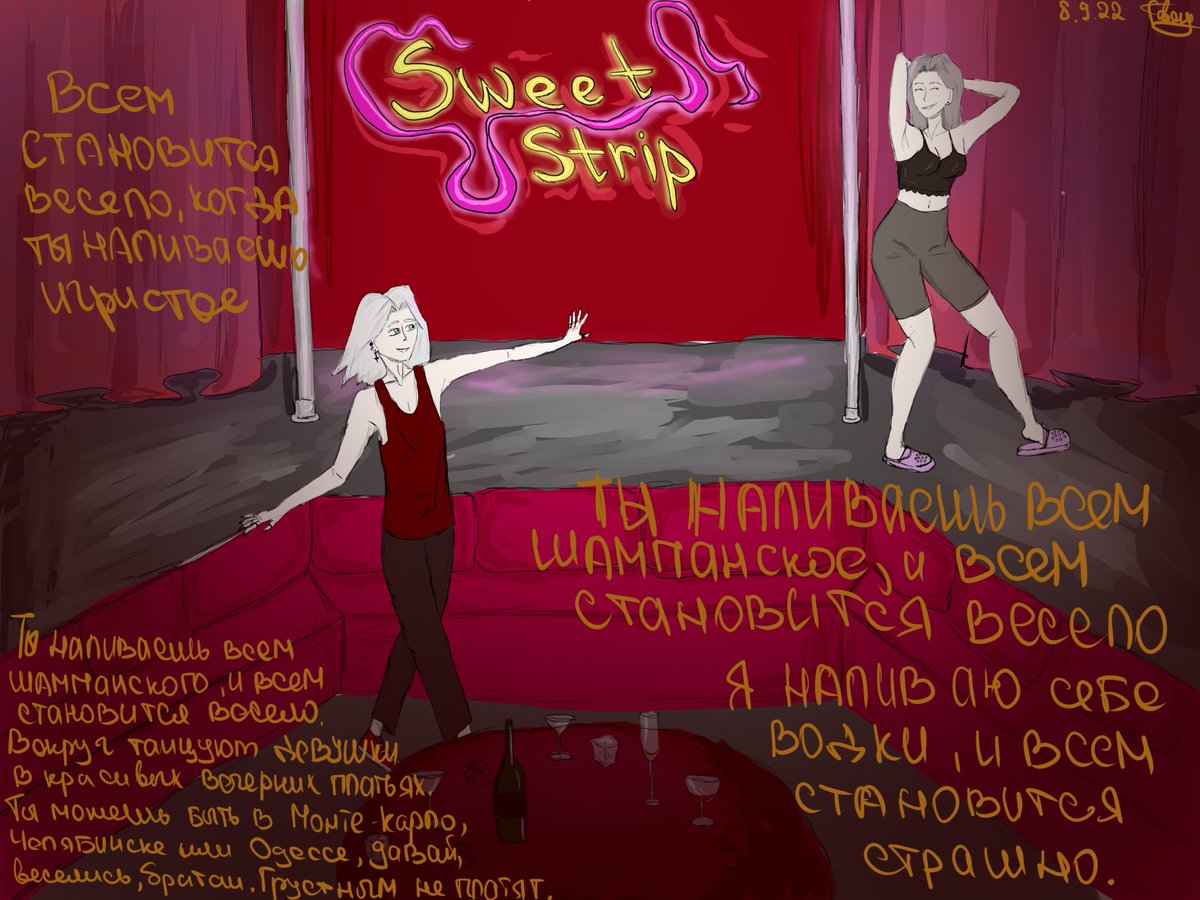 8.9.22
Sweet
Strip
Всем
становится
весело, когда
ты наливаешь
игристое
Ты наливаешь всем
шампанское, и всем
становится весело
Я наливаю себе
водки, и всем
становится
страшно.
Ты наливаешь всем
шампанского, и всем
становится восело.
Вокруг танцуют девушки
в красивых вечерних платьях.
Ты можешь быть в Монте-карло,
Челябинске или Одессе, давай,
веселись, братан. Грустным не плотят.